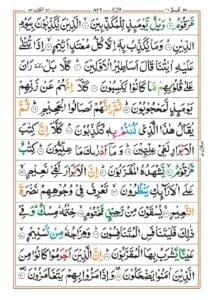 مَّرْقُوْمٌ وَيْلٌ يَّوْمَئِذٍ لِّلْمُكَذِّبِيْنَ الَّذِيْنَ يُكَذِّبُوْنَ بِيَوْمِ
الدِّيْنِ وَمَا يُكَذِّبُ بِهٖۤ اِلَّا كُلُّ مُعْتَدٍ اَثِيْمٍ اِذَا تُتْلٰى
عَلَيْهِ اٰيٰتُنَا قَالَ اَسَاطِيْرُ الْاَوَّلِيْنَ كَلَّا بَلْ رَانَ
عَلٰى قُلُوْبِهِمْ مَّا كَانُوْا يَكْسِبُوْنَ كَلَّاۤ اِنَّهُمْ عَنْ رَّبِّهِمْ
يَوْمَئِذٍ لَّمَحْجُوْبُوْنَ ثُمَّ اِنَّهُمْ لَصَالُوا الْجَحِيْمِ ثُمَّ
يُقَالُ هٰذَا الَّذِيْ كُنْتُمْ بِهٖ تُكَذِّبُوْنَ كَلَّاۤ اِنَّ كِتٰبَ
الْاَبْرَارِ لَفِيْ عِلِّيِّيْنَ وَمَاۤ اَدْرٰىكَ مَا عِلِّيُّوْنَ كِتٰبٌ
مَّرْقُوْمٌ يَّشْهَدُهُ الْمُقَرَّبُوْنَ اِنَّ الْاَبْرَارَ لَفِيْ نَعِيْمٍ
عَلَى الْاَرَآئِكِ يَنْظُرُوْنَ تَعْرِفُ فِيْ وُجُوْهِهِمْ نَضْرَةَ
النَّعِيْمِ يُسْقَوْنَ مِنْ رَّحِيْقٍ مَّخْتُوْمٍ خِتٰمُهٗ مِسْكٌ وَفِيْ
ذٰلِكَ فَلْيَتَنَافَسِ الْمُتَنَافِسُوْنَ وَمِزَاجُهٗ مِنْ تَسْنِيْمٍ
عَيْنًا يَّشْرَبُ بِهَا الْمُقَرَّبُوْنَ اِنَّ الَّذِيْنَ اَجْرَمُوْا كَانُوْا مِنَ
الَّذِيْنَ اٰمَنُوْا يَضْحَكُوْنَ وَاِذَا مَرُّوْا بِهِمْ يَتَغَامَزُوْنَ